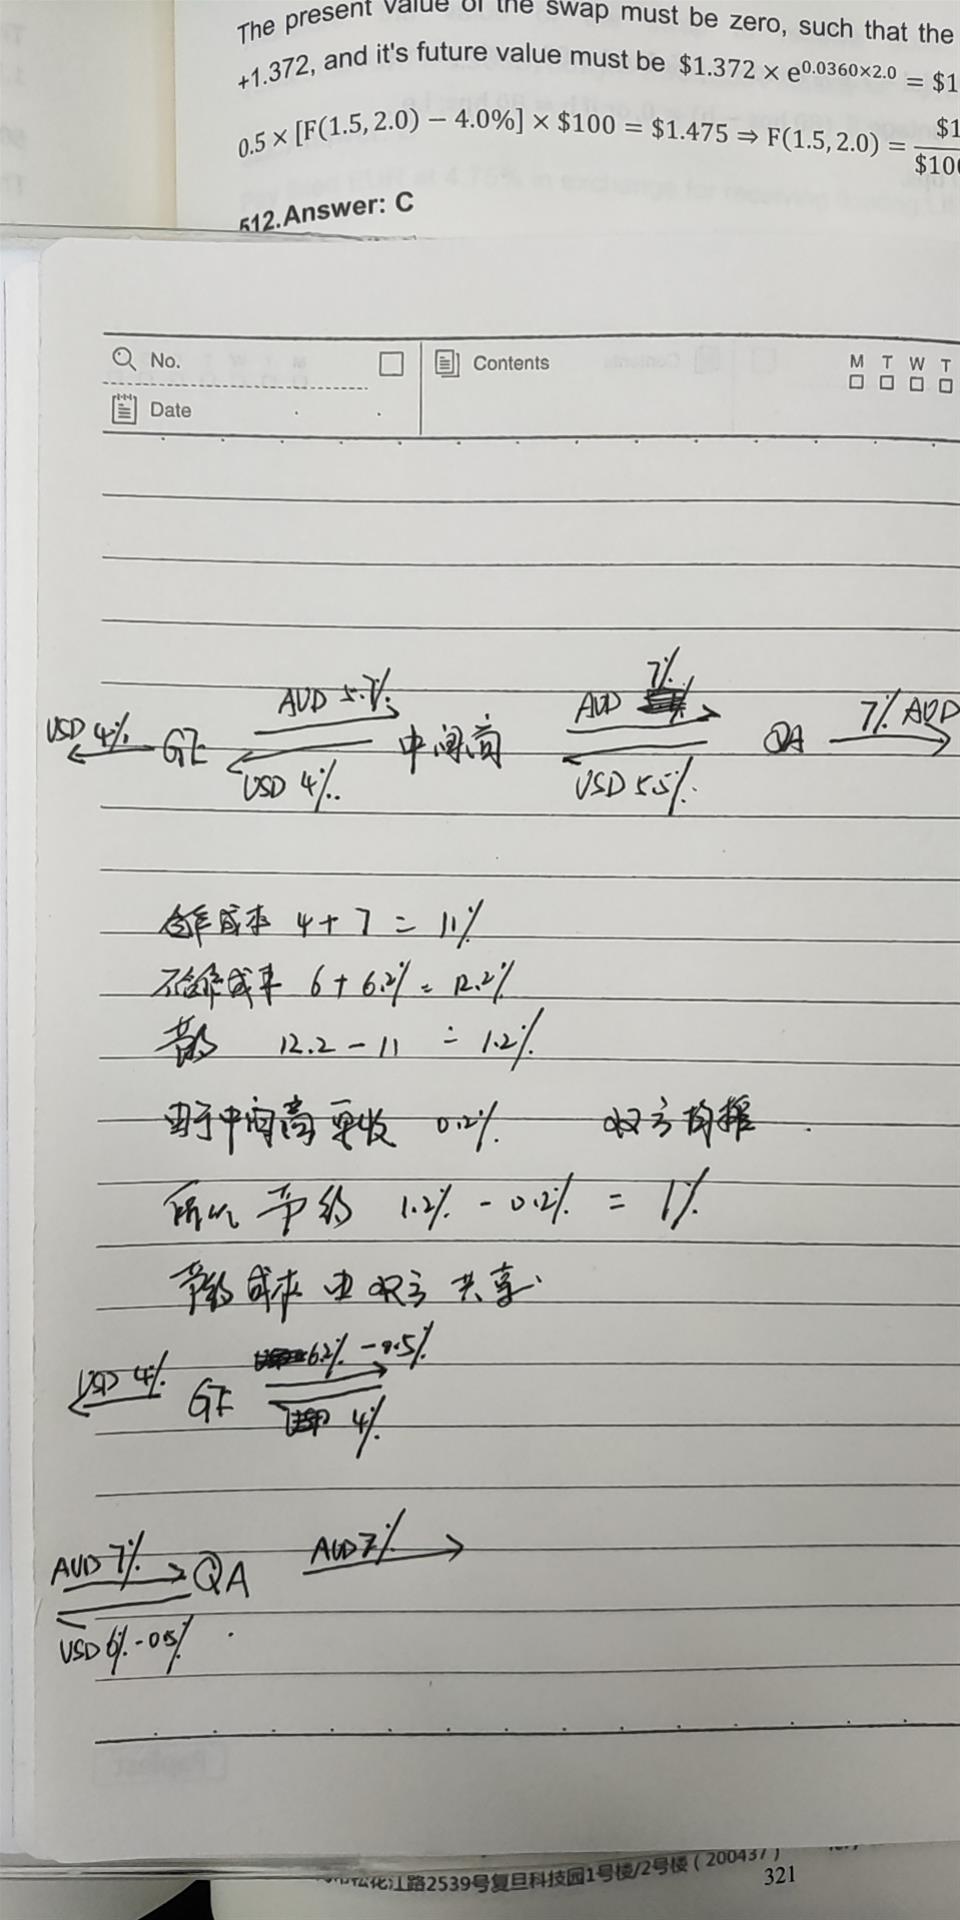 The present value of the swap must be zero, such that the
+1.372, and it's future value must be $1.372 × e^0.0360×2.0 = $1
0.5 × [F(1.5, 2.0) − 4.0%] × $100 = $1.475 ⇒ F(1.5, 2.0) = $1 / $100
512.Answer: C
No.
Contents
M T W T
Date
USD 4% GE AUD 5.7% USD 4% 中间商 AUD 7% USD 5.5% QA 7% AUD
合作成本 4+7=11%
不合作成本 6+6.2%=12.2%
节约 12.2-11=1.2%
由于中间商要收 0.2% 双方均摊.
所以节约 1.2%-0.2%=1%
节约成本由双方共享.
USD 4% GE 6.2%-0.5% 4%
AUD 7% QA AUD 7%
USD 6%-0.5%
松花江路2539号复旦科技园1号楼/2号楼(200437)
321